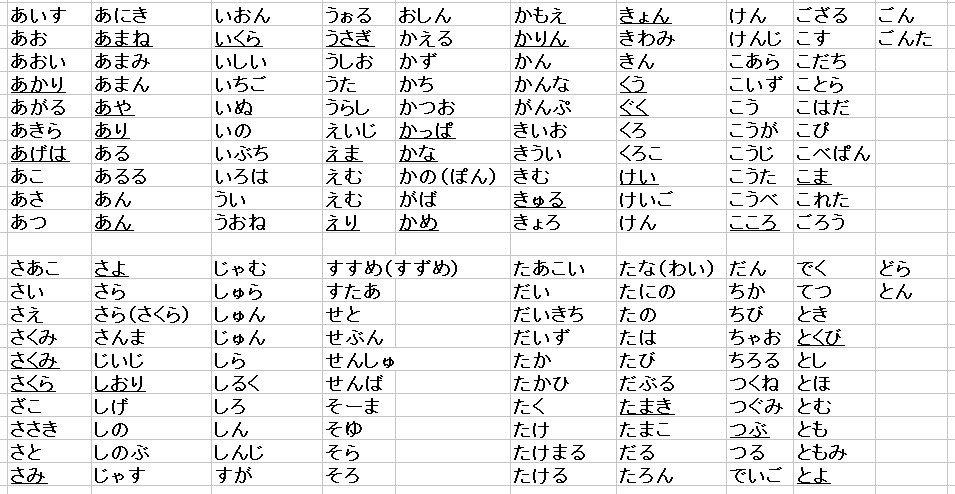 あいす あにき いおん うぉる おしん かもえ きょん けん ござる ごん
あお あまね いくら うさぎ かえる かりん きわみ けんじ こす ごんた
あおい あまみ いしい うしお かず かん きん こあら こだち
あかり あまん いちご うた かち かんな くう こいず ことら
あがる あや いぬ うらし かつお がんぷ ぐく こう こはだ
あきら あり いの えいじ かっぱ きいお くろ こうが こぴ
あげは ある いぶち えま かな きうい くろこ こうじ こべぱん
あこ あるる いろは えむ かの(ぽん) きむ けい こうた こま
あさ あん うい えむ がば きゅる けいご こうべ これた
あつ あん うおね えり かめ きょろ けん こころ ごろう
さあこ さよ じゃむ すすめ(すずめ) たあこい たな(わい) だん でく どら
さい さら しゅら すたあ だい たにの ちか てつ とん
さえ さら(さくら) しゅん せと だいきち たの ちび とき
さくみ さんま じゅん せぶん だいず たは ちゃお とくび
さくみ じいじ しら せんしゅ たか たび ちろる とし
さくら しおり しるく せんば たかひ だぶる つくね とほ
ざこ しげ しろ そーま たく たまき つぐみ とむ
ささき しの しん そゆ たけ たまこ つぶ とも
さと しのぶ しんじ そら たけまる だる つる ともみ
さみ じゃす すが そろ たける たろん でいご とよ